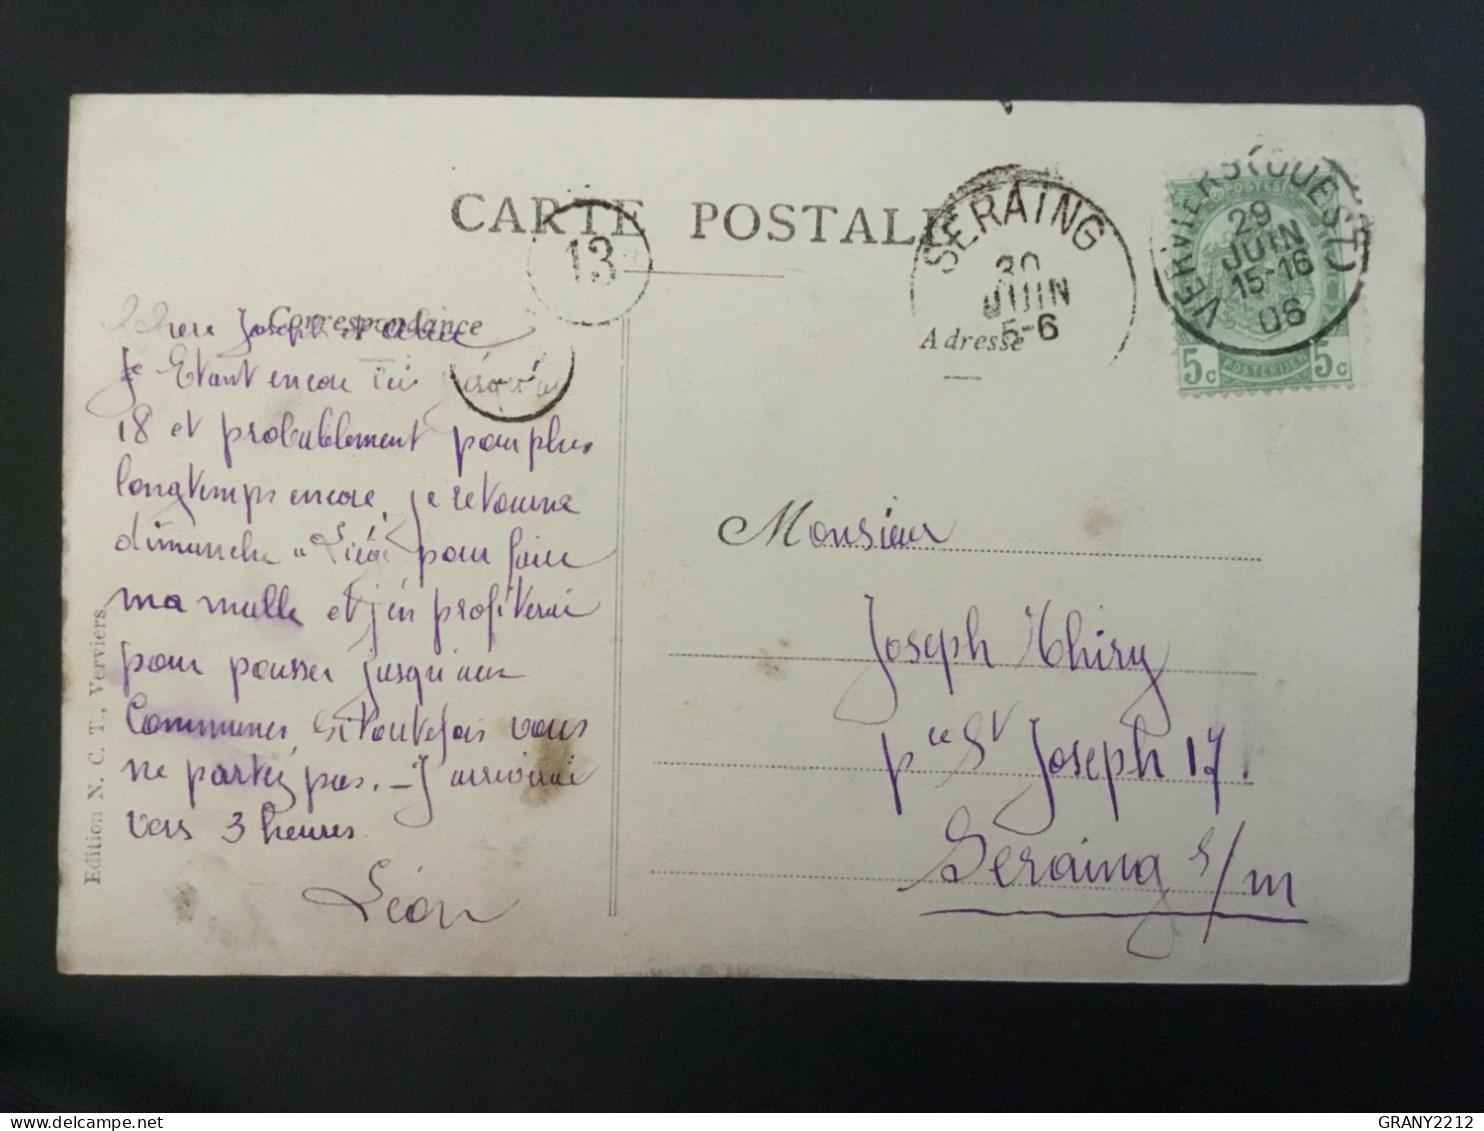 CARTE POSTALE
13
SERAING
30
JUIN
5-6
VERVIERS (OUEST)
29
JUIN
15-16
06
POSTES
5c POSTERIJEN 5c
Correspondance
Adresse
Joseph et
Je Etant encore ici jusqu'au
18 et probablement pour plus
longtemps encore, je retourne
dimanche à Liége pour faire
ma malle et j'en profiterai
pour pousser jusqu'aux
Communes, si toutefois vous
ne partez pas. – J'arriverai
vers 3 heures.
Léon
Monsieur
Joseph Thiry
pce St Joseph 17.
Seraing s/m
Edition N. C. T., Verviers.
GRANY2212